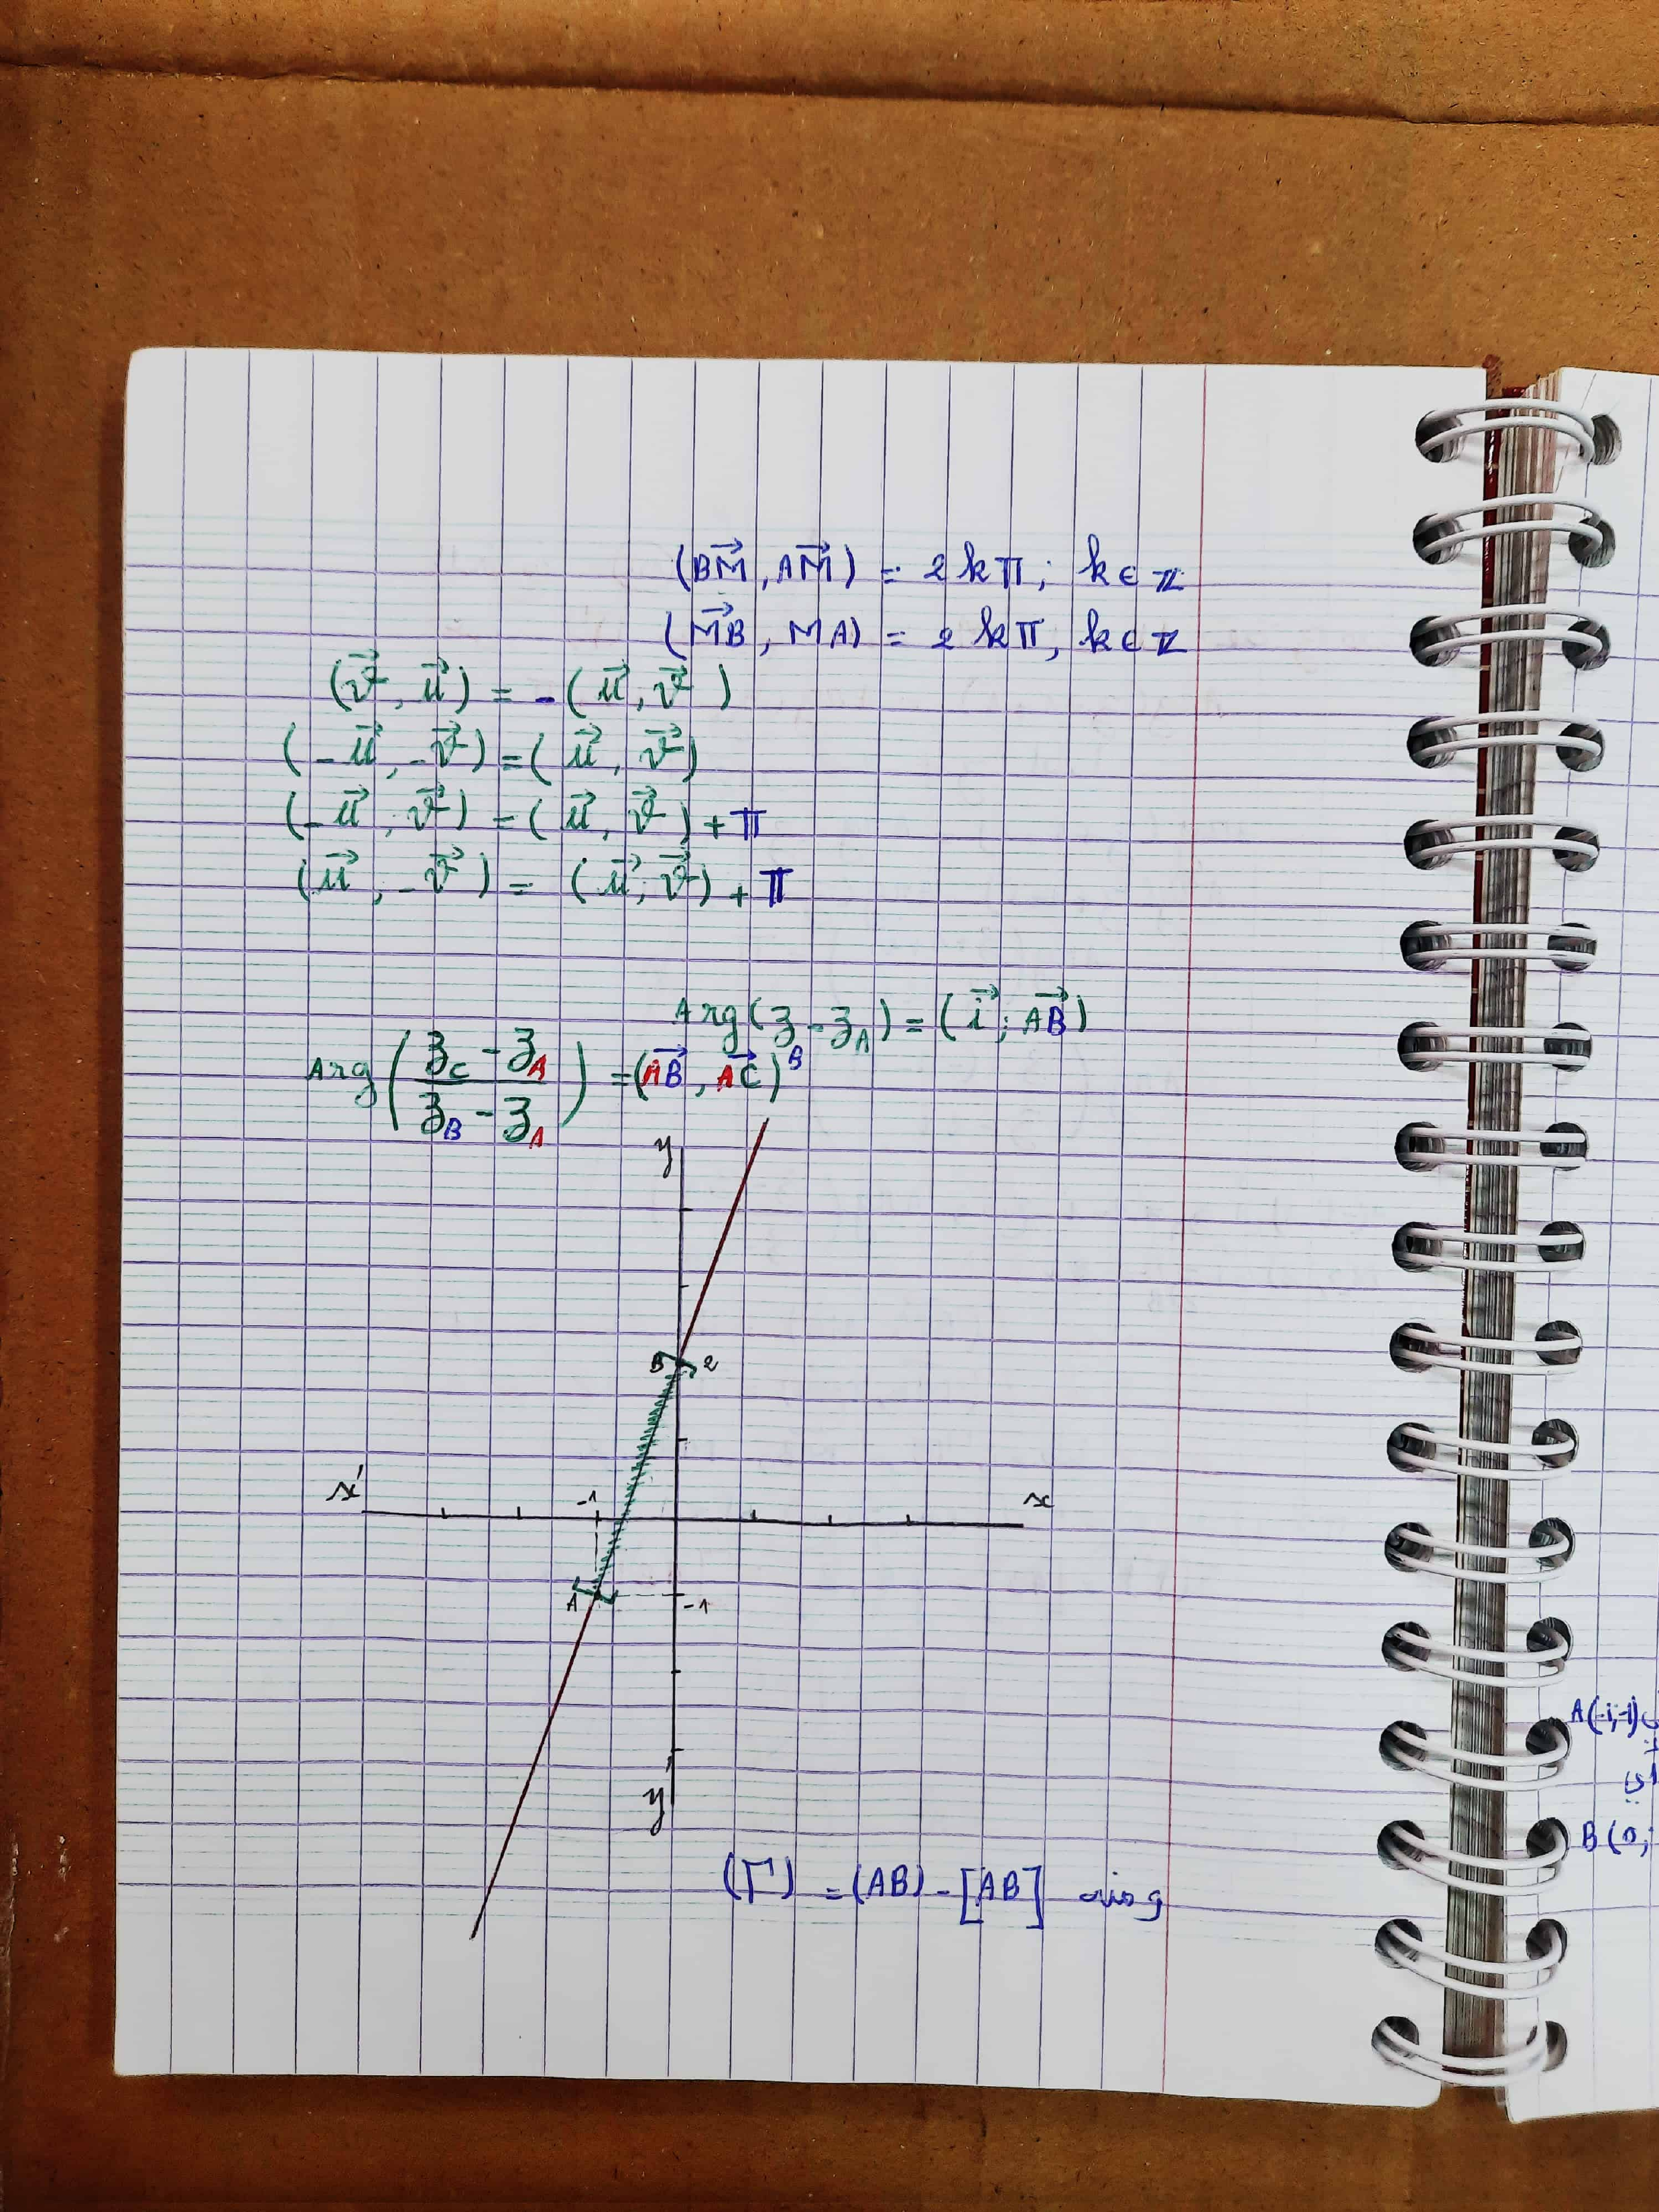 (BM⃗, AM⃗) = 2kπ; k∈ℤ
(MB⃗, MA) = 2kπ, k∈ℤ
(v⃗, u⃗) = -(u⃗, v⃗)
(-u⃗, -v⃗) = (u⃗, v⃗)
(-u⃗, v⃗) = (u⃗, v⃗) + π
(u⃗, -v⃗) = (u⃗, v⃗) + π
Arg(z_B - z_A) = (i⃗; AB⃗)
Arg((z_C - z_A)/(z_B - z_A)) = (AB⃗, AC⃗)
y
B 2
x' -1 x
A -1
y'
(Γ) = (AB) - [AB] ومنه
A(-1;-1)
B(0;